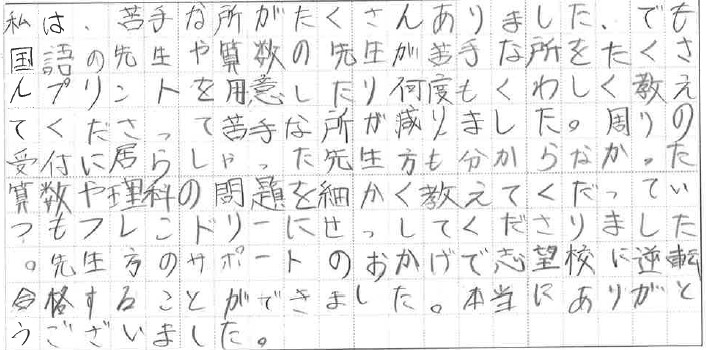 私は、苦手な所がたくさんありました、でも
国語の先生や算数の先生が苦手な所をたくさ
んプリントを用意したり何度もくわしく教え
てくださって苦手な所が減りました。周りの
受付に居らしゃった先生方も分からなかった
算数や理科の問題を細かく教えてくだってい
つもフレンドリーにせっしてくださりました
。先生方のサポートのおかげで志望校に逆転
合格することができました。本当にありがと
うございました。